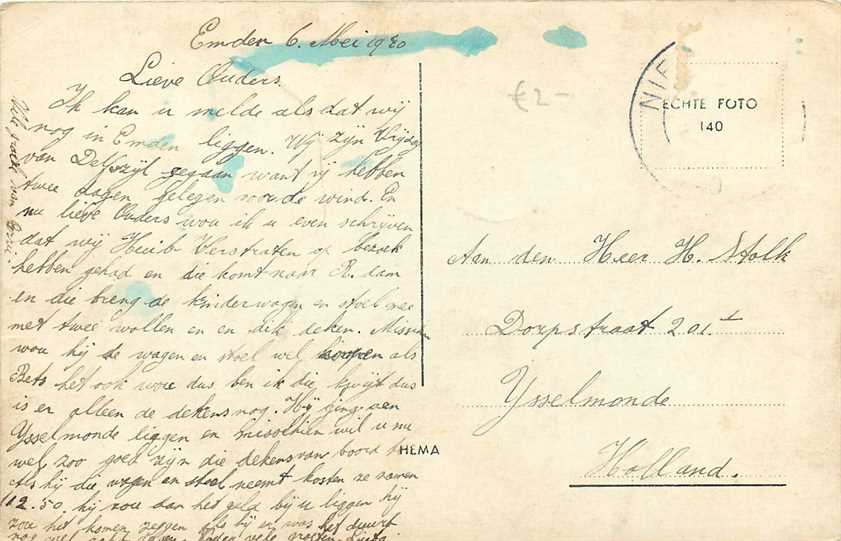 Emden 6. Mei 1940
Lieve Ouders.
Ik kan u melde als dat wij
nog in Emden liggen. Wij zijn Vrijdag
van Delfzijl gegaan want wij hebben
twee dagen gelegen voor de wind. En
nu lieve Ouders wou ik u even schrijven
dat wij Huib Verstraten op bezoek
hebben gehad en die komt naar R.dam
en die breng de kinderwagen en stoel mee
met twee wollen en en dik deken. Misschien
wou hij de wagen en stoel wel koopen als
Bets het ook wou dus ben ik die kwijt dus
is er alleen de dekens nog. Hij ging aan
Ysselmonde liggen en misschien wil u nu
wel zoo goed zijn die dekens van boord te
Als hij die wagen en stoel neemt kosten ze samen
12.50. hij zou dan het geld bij u liggen hij
zou het komen zeggen als hij er was het duurt
nog wel acht dagen.
€2-
NIE
ECHTE FOTO
140
Aan den Heer H. Stolk
Dorpstraat 201
Ysselmonde
Holland.
HEMA